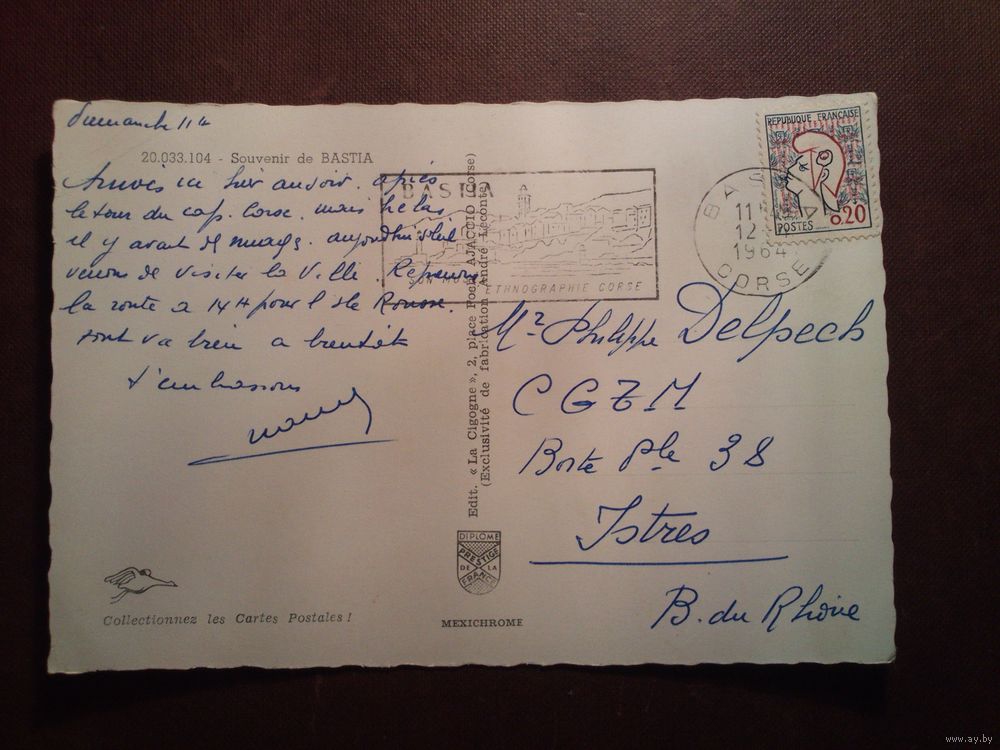 dimanche 11h
20.033.104 - Souvenir de BASTIA
Arrivés ici hier au soir. après
le tour du cap. Corse. mais helas
il y avait des nuages. aujourd'hui
venons de visiter la Ville. Reprenons
la route a 14H pour l'Ile Rousse.
tout va bien a bientôt
t'embrassons
BASTIA
SON MUSEE
ETHNOGRAPHIE CORSE
BASTIA
11H
12
1964
CORSE
REPUBLIQUE FRANÇAISE
0,20
POSTES
Edit. « La Cigogne », 2, place Foch AJACCIO (Corse)
(Exclusivité de fabrication André Leconte)
Mr Philippe Delpech
Boite Ple 38
Istres
B. du Rhône
DIPLOME
PRESTIGE
DE LA
FRANCE
Collectionnez les Cartes Postales !
MEXICHROME
www.ay.by